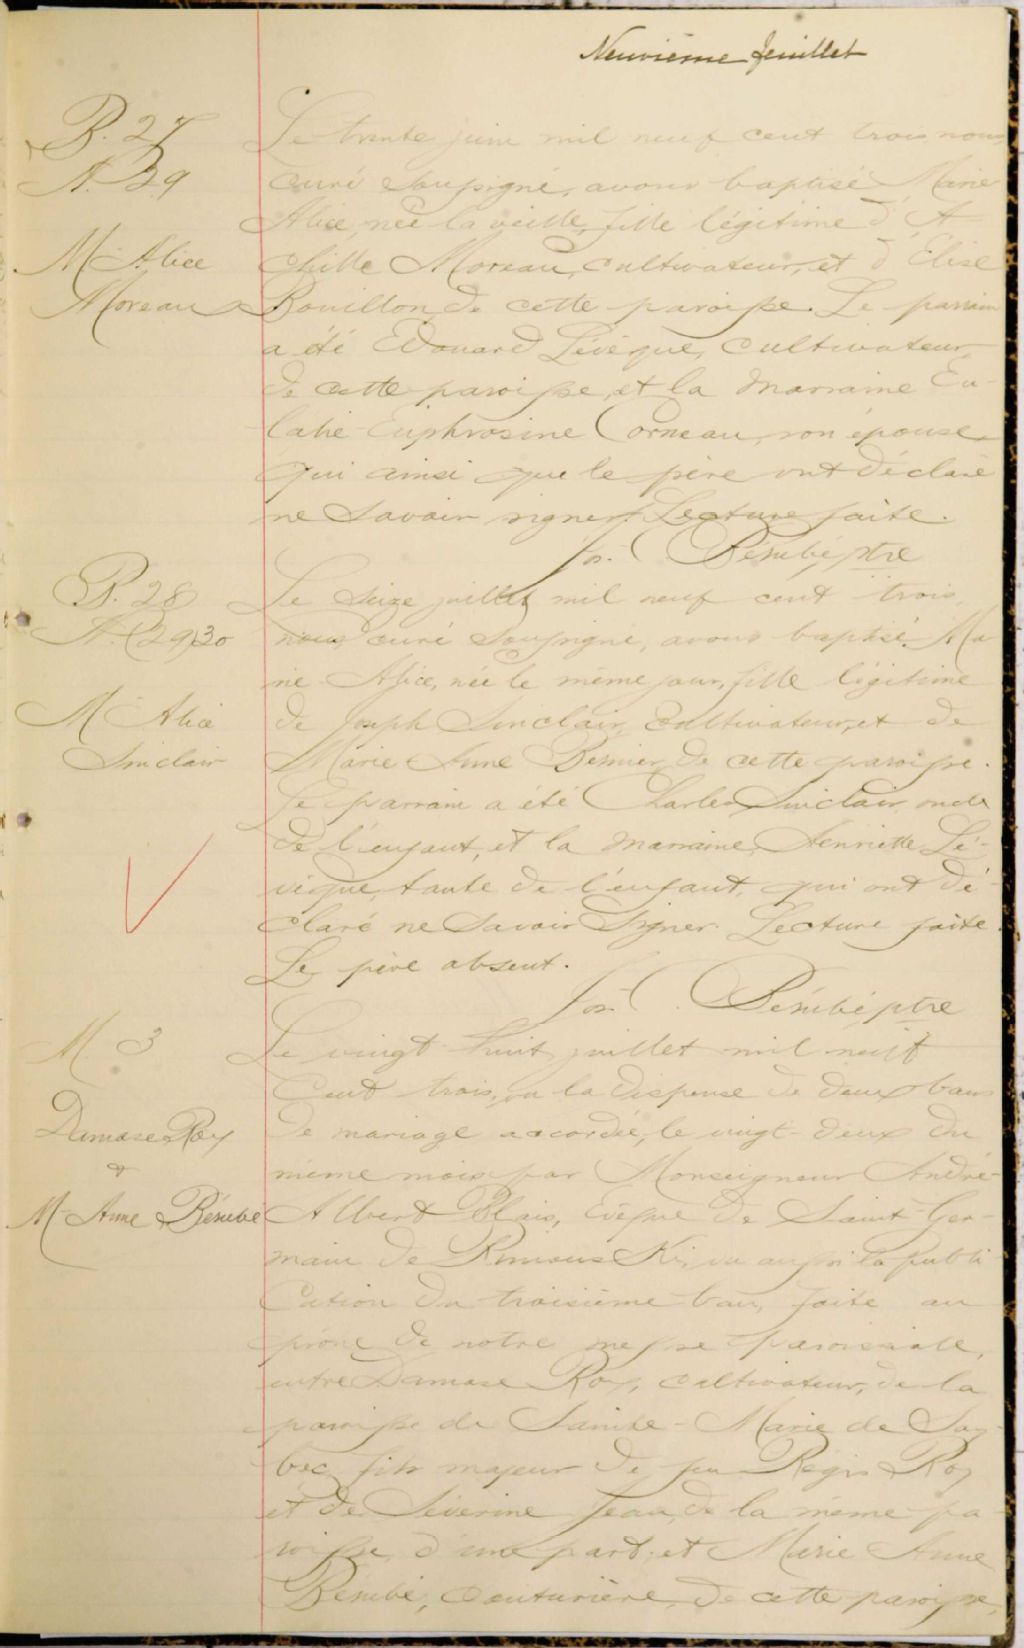 Neuvième feuillet
B. 27
A. 29
M Alice
Moreau
Le trente juin mil neuf cent trois nous,
curé soussigné, avons baptisé Marie
Alice, née la veille, fille légitime d'A-
chille Moreau, cultivateur, et d'Elise
Bouillon, de cette paroisse. Le parrain
a été Edouard Lévèque, cultivateur
de cette paroisse, et la marraine Eu-
lalie Euphrosine Corneau, son épouse
qui ainsi que le père ont déclaré
ne savoir signer. Lecture faite.
Jos. C. Bérubé ptre
B. 28
A. (29) 30
M Alice
Sinclair
Le seize juillet mil neuf cent trois,
nous, curé soussigné, avons baptisé Ma
rie Alice, née le même jour, fille légitime
de Joseph Sinclair, cultivateur, et de
Marie Anne Bernier, de cette paroisse.
Le parrain a été Charles Sinclair, oncle
de l'enfant, et la marraine, Henriette Lé-
vèque, tante de l'enfant, qui ont dé-
claré ne savoir signer. Lecture faite.
Le père absent.
Jos. C. Bérubé ptre
M. 3
Damase Roy
&
M Anne Bérubé
Le vingt huit juillet mil neuf
cent trois, vu la dispense de deux bans
de mariage accordée, le vingt deux du
même mois par Monseigneur André-
Albert Blais, Evêque de Saint Ger-
main de Rimouski, vu aussi la publi-
cation du troisième ban, faite au
prône de notre messe paroissiale,
entre Damase Roy, cultivateur, de la
paroisse de Sainte-Marie de Say-
bec, fils majeur de feu Régis Roy
et de Séverine Jean, de la même pa-
roisse, d'une part, et Marie Anne
Bérubé, couturière, de cette paroisse,